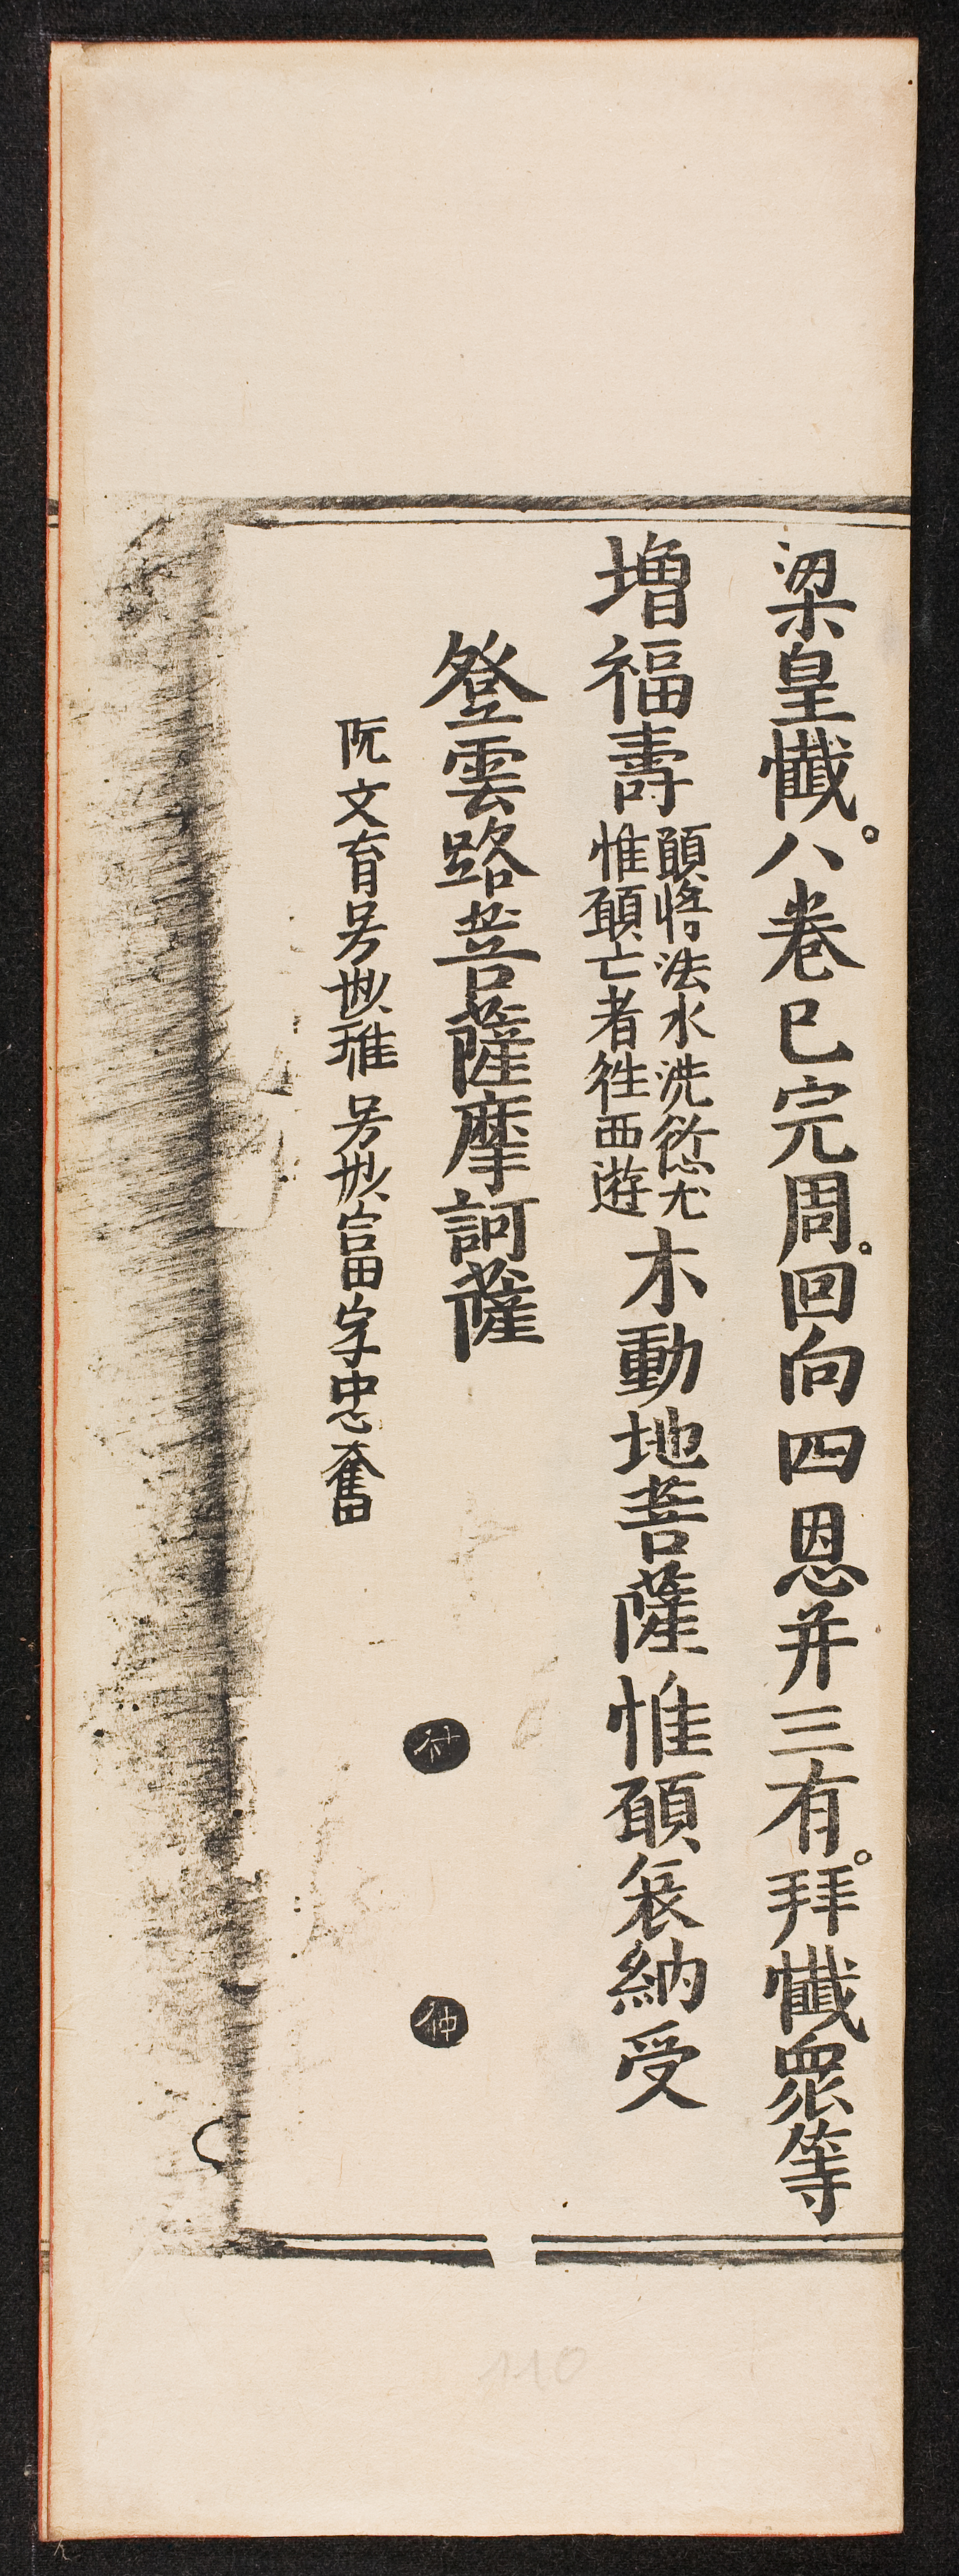 梁皇懺。八卷已完周。回向四恩并三有。拜懺眾等
增福壽
願將法水洗愆尤
惟願亡者徃西遊
不動地菩薩惟願哀納受
登雲路菩薩摩訶薩
阮文育号妙琟号妙富字忠奮
仲
110